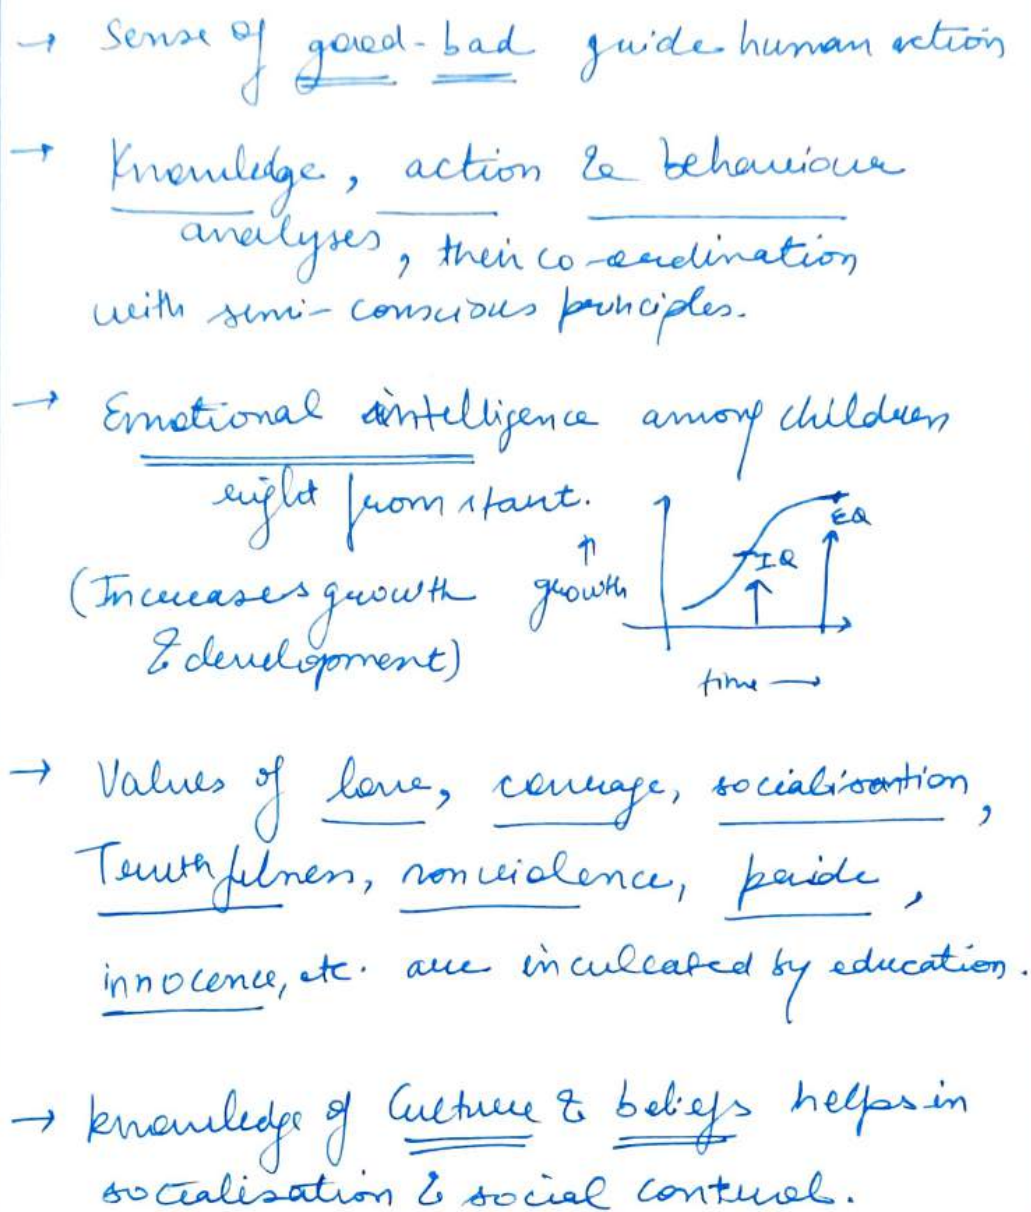 → Sense of good-bad guide human action
→ Knowledge, action & behaviour
analyses, their co-ordination
with semi-conscious principles.
→ Emotional intelligence among children
right from start.
(Increases growth
& development)
↑
growth
EQ
IQ
time →
→ Values of love, courage, socialisation,
Truthfulness, nonviolence, pride,
innocence, etc. are inculcated by education.
→ knowledge of Culture & beliefs helps in
socialisation & social control.